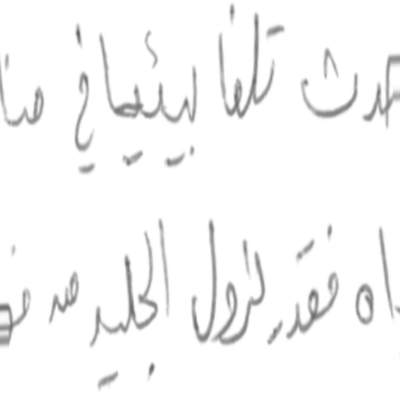 حدث تلفا بيئيا في منا
اه فقد نزول الجليد من